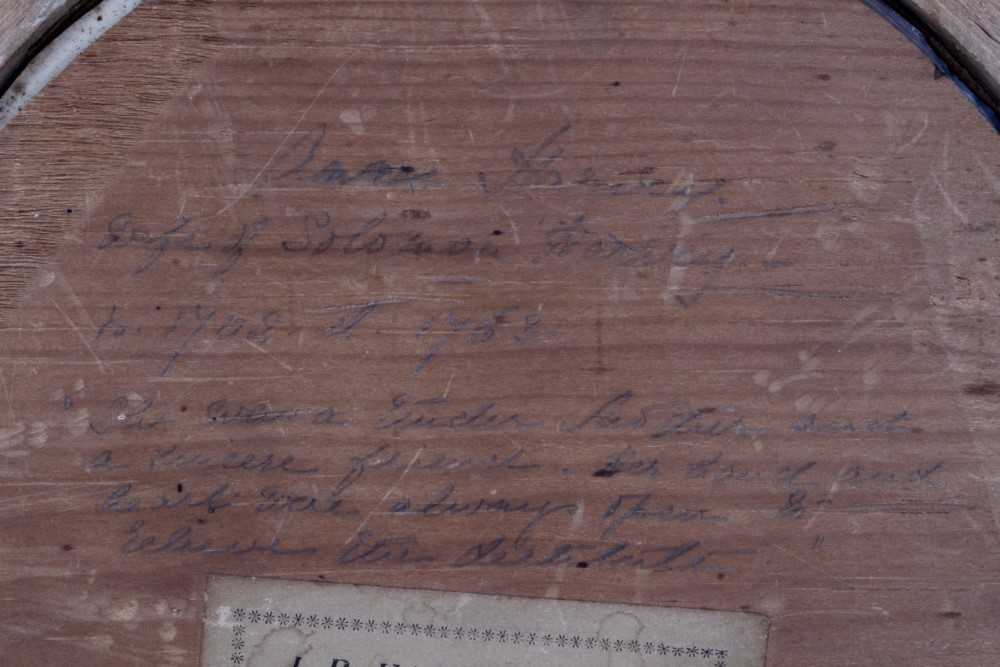 Anna
Wife of Solomon
b. 1702 d. 1752
" She was a tender mother and
a sincere friend. Her hand and
heart were always open to
relieve the destitute "